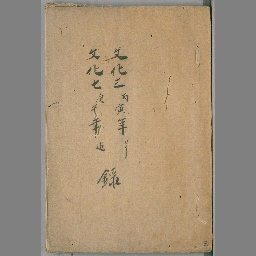 文化三丙寅年ヨリ
文化七庚午年迄
録